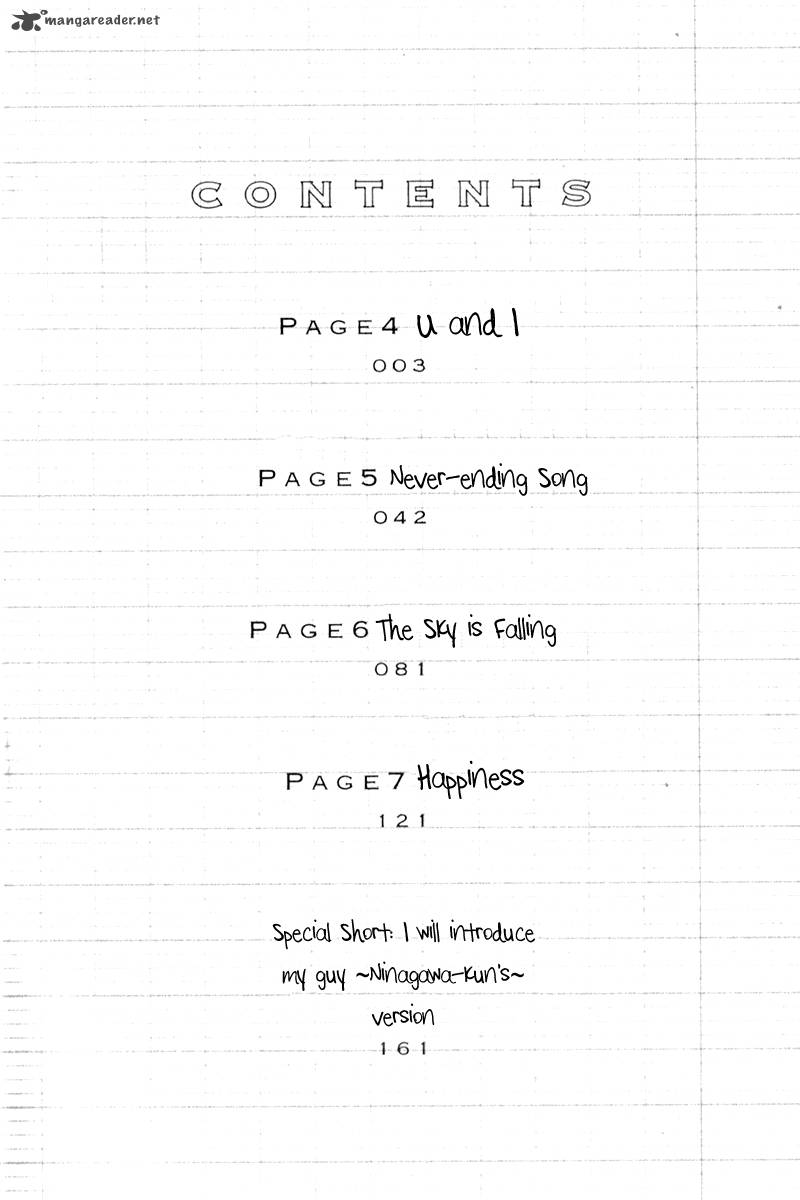 mangareader.net
CONTENTS
PAGE4 U and I
003
PAGE5 Never-ending Song
042
PAGE6 The Sky is Falling
081
PAGE7 Happiness
121
Special Short: I will introduce
my guy ~Ninagawa-Kun's~
version
161